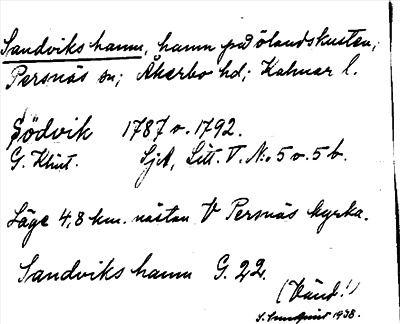 Sandviks hamn, hamn på Ölandskusten;
Persnäs sn; Åkerbo hd; Kalmar l.
Södvik 1787 o. 1792.
G. Klint. Sjö, Litt. V. No 5 o. 5 b.
Läge 4,8 km. nästan V Persnäs kyrka.
Sandviks hamn G. 22.
(Vänd!)
S. Lundquist 1938.